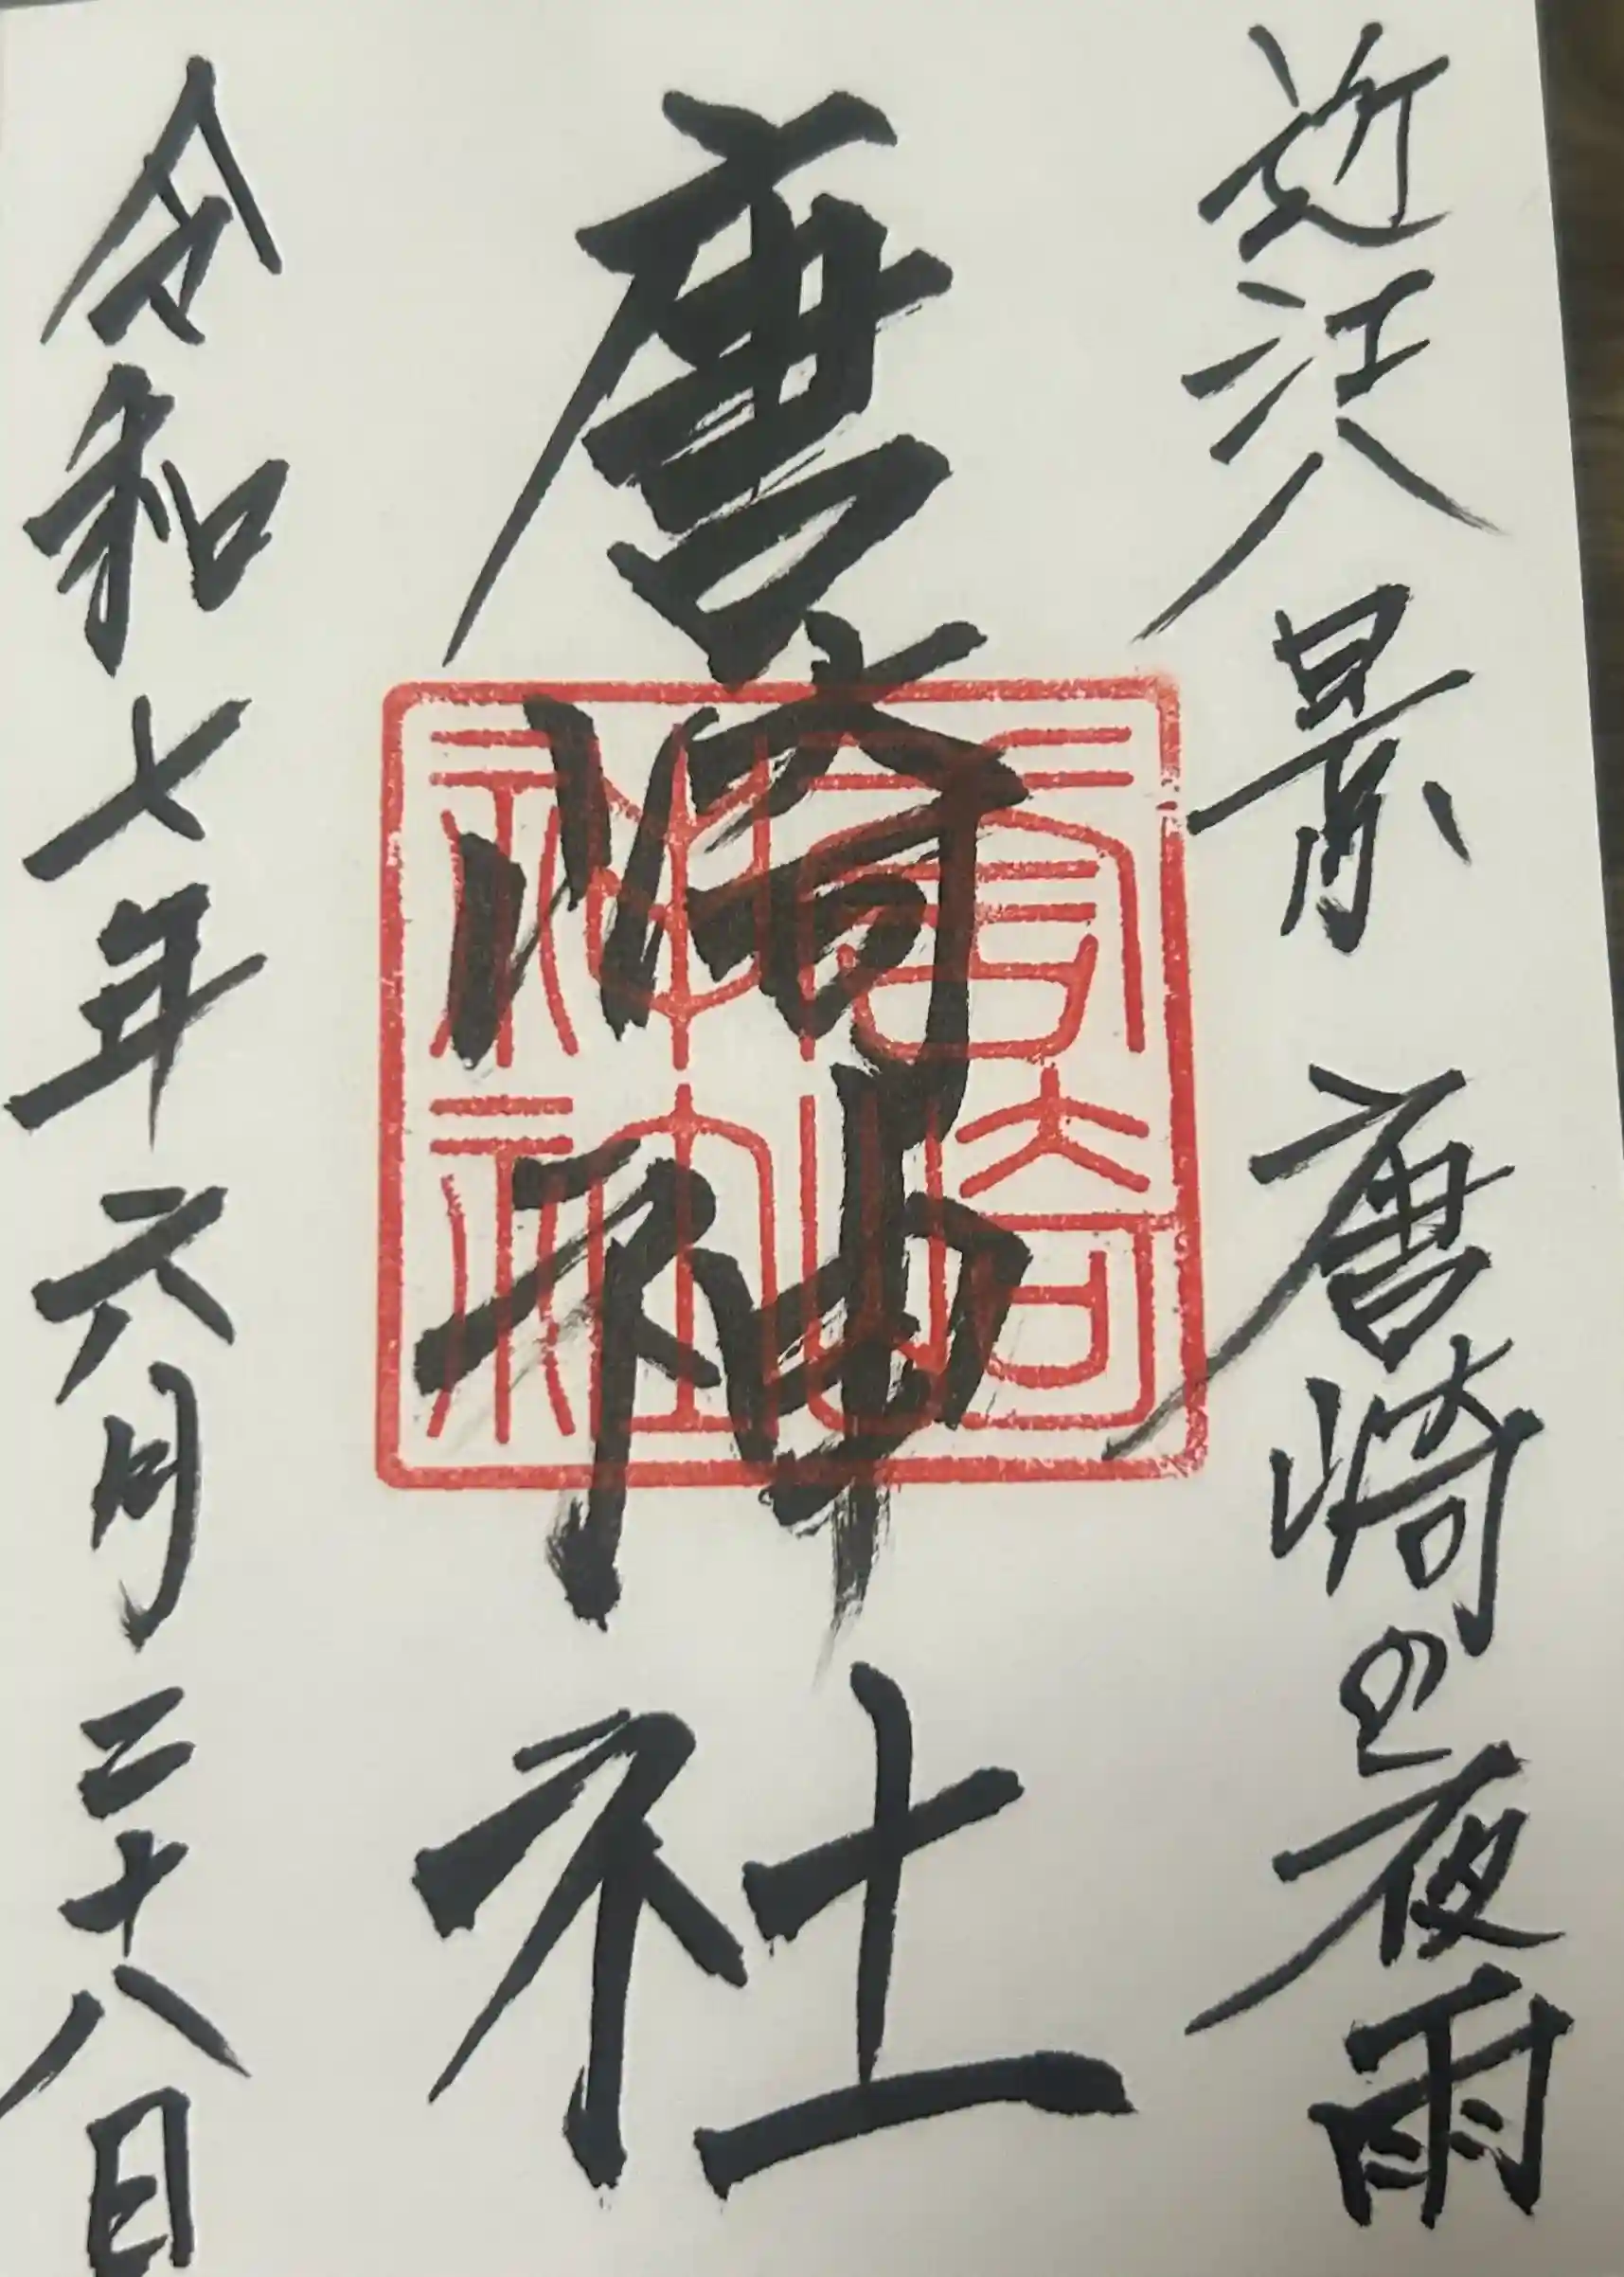 近江八景 唐崎の夜雨
唐崎神社
唐崎神社
令和七年六月二十八日